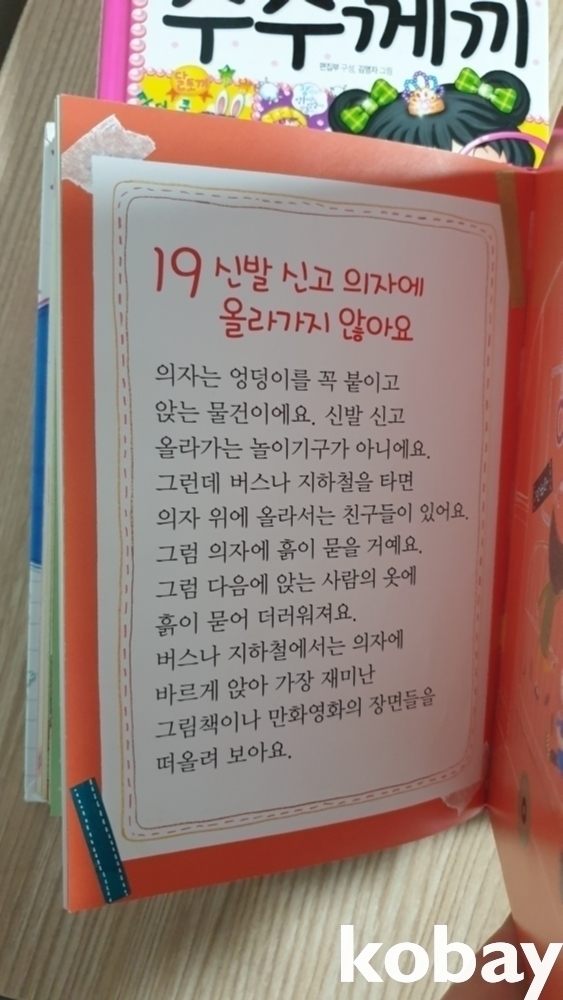 수수께끼
편집부 구성, 김영자 그림
19 신발 신고 의자에
올라가지 않아요
의자는 엉덩이를 꼭 붙이고
앉는 물건이에요. 신발 신고
올라가는 놀이기구가 아니에요.
그런데 버스나 지하철을 타면
의자 위에 올라서는 친구들이 있어요.
그럼 의자에 흙이 묻을 거예요.
그럼 다음에 앉는 사람의 옷에
흙이 묻어 더러워져요.
버스나 지하철에서는 의자에
바르게 앉아 가장 재미난
그림책이나 만화영화의 장면들을
떠올려 보아요.
kobay